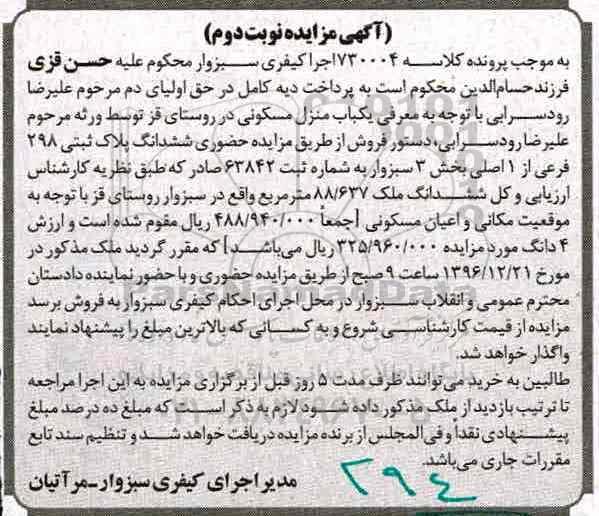 (آگهی مزایده نوبت دوم)
به موجب پرونده کلاسه ۷۳۰۰۰۴ اجرا کیفری سبزوار محکوم علیه حسن قزی
فرزند حسام‌الدین محکوم است به پرداخت دیه کامل در حق اولیای دم مرحوم علیرضا
رودسرابی با توجه به معرفی یکباب منزل مسکونی در روستای قز توسط ورثه مرحوم
علیرضا رودسرابی، دستور فروش از طریق مزایده حضوری ششدانگ پلاک ثبتی ۲۹۸
فرعی از ۱ اصلی بخش ۳ سبزوار به شماره ثبت ۶۳۸۴۲ صادر که طبق نظریه کارشناس
ارزیابی و کل ششدانگ ملک ۸۸/۶۳۷ مترمربع واقع در سبزوار روستای قز با توجه به
موقعیت مکانی و اعیان مسکونی [جمعا ۴۸۸/۹۴۰/۰۰۰ ریال مقوم شده است و ارزش
۴ دانگ مورد مزایده ۳۲۵/۹۶۰/۰۰۰ ریال می‌باشد] که مقرر گردید ملک مذکور در
مورخ ۱۳۹۶/۱۲/۲۱ ساعت ۹ صبح از طریق مزایده حضوری و با حضور نماینده دادستان
محترم عمومی و انقلاب سبزوار در محل اجرای احکام کیفری سبزوار به فروش برسد
مزایده از قیمت کارشناسی شروع و به کسانی که بالاترین مبلغ را پیشنهاد نمایند
واگذار خواهد شد.
طالبین به خرید می‌توانند ظرف مدت ۵ روز قبل از برگزاری مزایده به این اجرا مراجعه
تا ترتیب بازدید از ملک مذکور داده شود لازم به ذکر است که مبلغ ده درصد مبلغ
پیشنهادی نقداً و فی‌المجلس از برنده مزایده دریافت خواهد شد و تنظیم سند تابع
مقررات جاری می‌باشد.
مدیر اجرای کیفری سبزوار-مرآتیان
۲۹۴